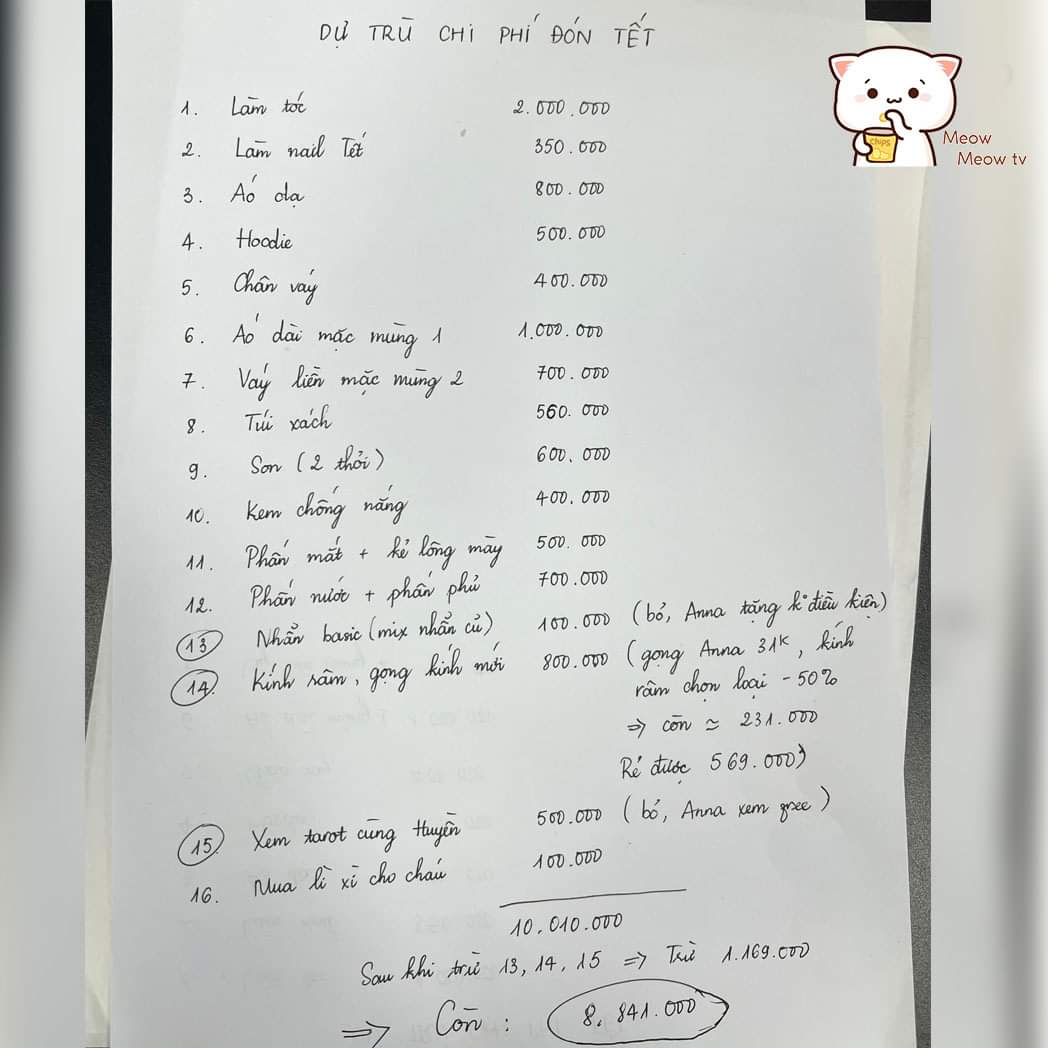 DỰ TRÙ CHI PHÍ ĐÓN TẾT
Meow
Meow tv
chips
1. Làm tóc 2.000.000
2. Làm nail Tết 350.000
3. Áo dạ 800.000
4. Hoodie 500.000
5. Chân váy 400.000
6. Áo dài mặc mùng 1 1.000.000
7. Váy liền mặc mùng 2 700.000
8. Túi xách 560.000
9. Son (2 thỏi) 600.000
10. Kem chống nắng 400.000
11. Phấn mắt + kẻ lông mày 500.000
12. Phấn nước + phấn phủ 700.000
13 Nhẫn basic (mix nhẫn cũ) 100.000 (bỏ, Anna tặng k° điều kiện)
14. Kính râm, gọng kính mới 800.000 (gọng Anna 31K, kính
râm chọn loại - 50%
=> còn ≃ 231.000
Rẻ được 569.000)
15 Xem tarot cùng Huyền 500.000 (bỏ, Anna xem free)
16. Mua lì xì cho cháu 100.000
10.010.000
Sau khi trừ 13, 14, 15 => Trừ 1.169.000
=> Còn: 8.841.000